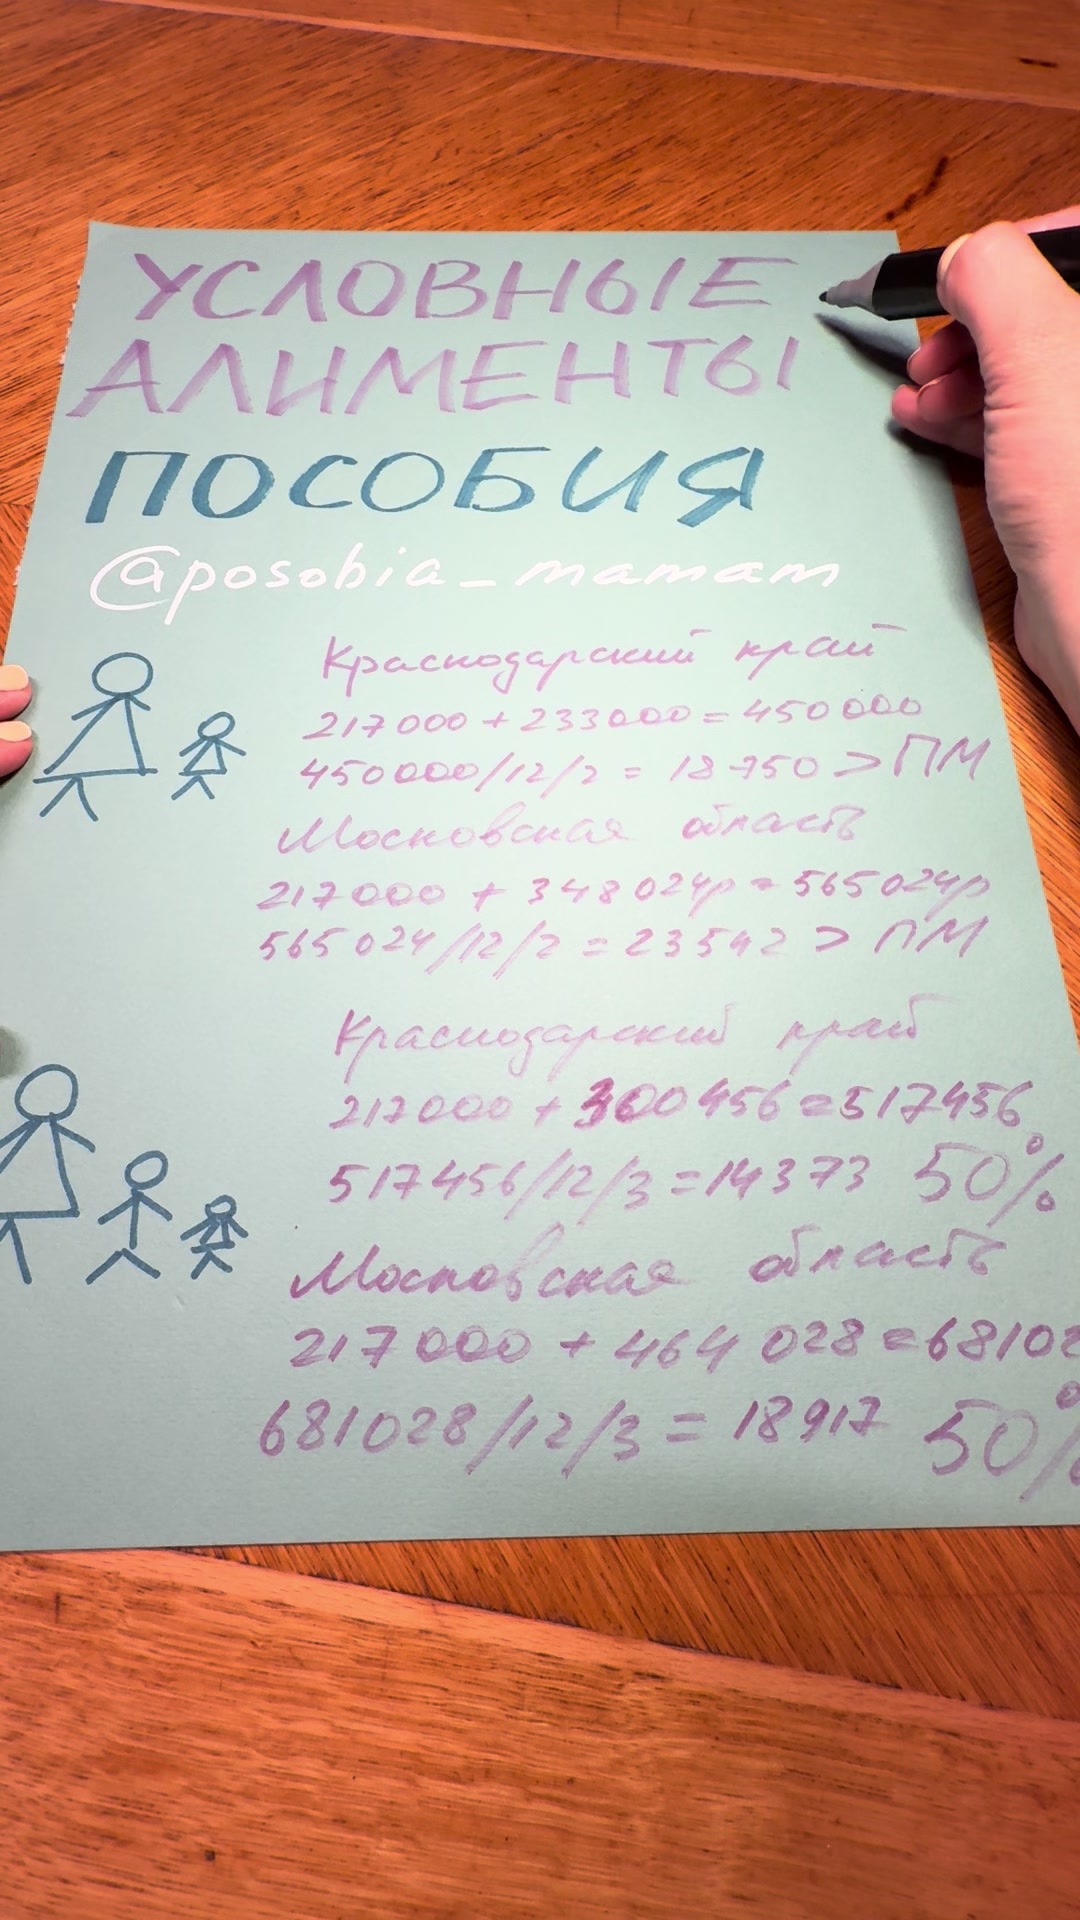 УСЛОВНЫЕ
АЛИМЕНТЫ
ПОСОБИЯ
@posobia_mamam
Краснодарский край
217000 + 233000 = 450000
450000/12/2 = 18750 > ПМ
Московская область
217000 + 348024р = 565024р
565024/12/2 = 23542 > ПМ
Краснодарский край
217000 + 300456 = 517456
517456/12/3 = 14373 50%
Московская область
217000 + 464028 = 68102
681028/12/3 = 18917 50%